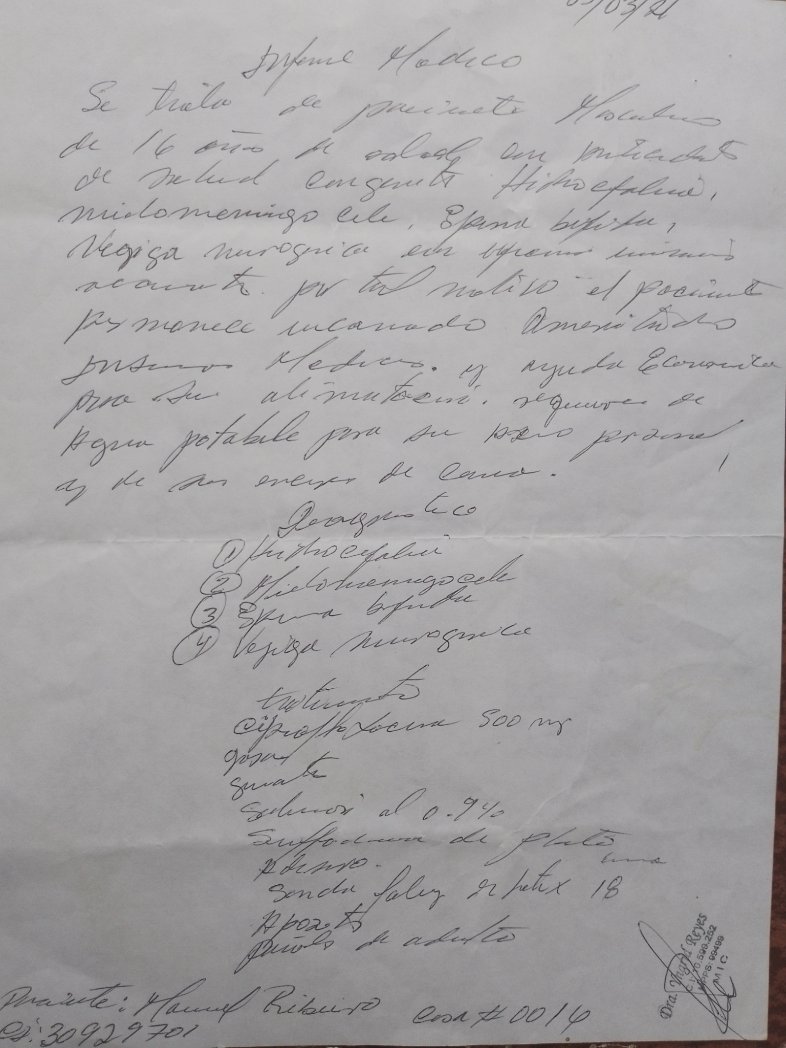 /03/21
Informe Medico
Se trata de paciente Masculino
de 16 años de edad con
de salud congenita Hidrocefalia,
midomeningocele, Espina bifida,
Vegiga neurogenica con
por tal motivo el paciente
permanece encamado Ameritando
Insumos Medicos. y ayuda Economica
para su alimentacion. requiere de
Agua potabale para su aseo personal
y de sus enceres de cama.
Diagnostico
① Hidrocefalia
② Midomeningocele
③ Espina bifida
④ Vegiga neurogenica
tratamiento
Ciprofloxacina 500 mg
gasas
guantes
Solucion al 0.9%
de plata
Adesivo.
Sonda foley de latex 18
Aposito
pañals de adulto
Dra. Yngrid Reyes
Paciente: Manuel Ribeiro Casa # 0014
CI: 30929701